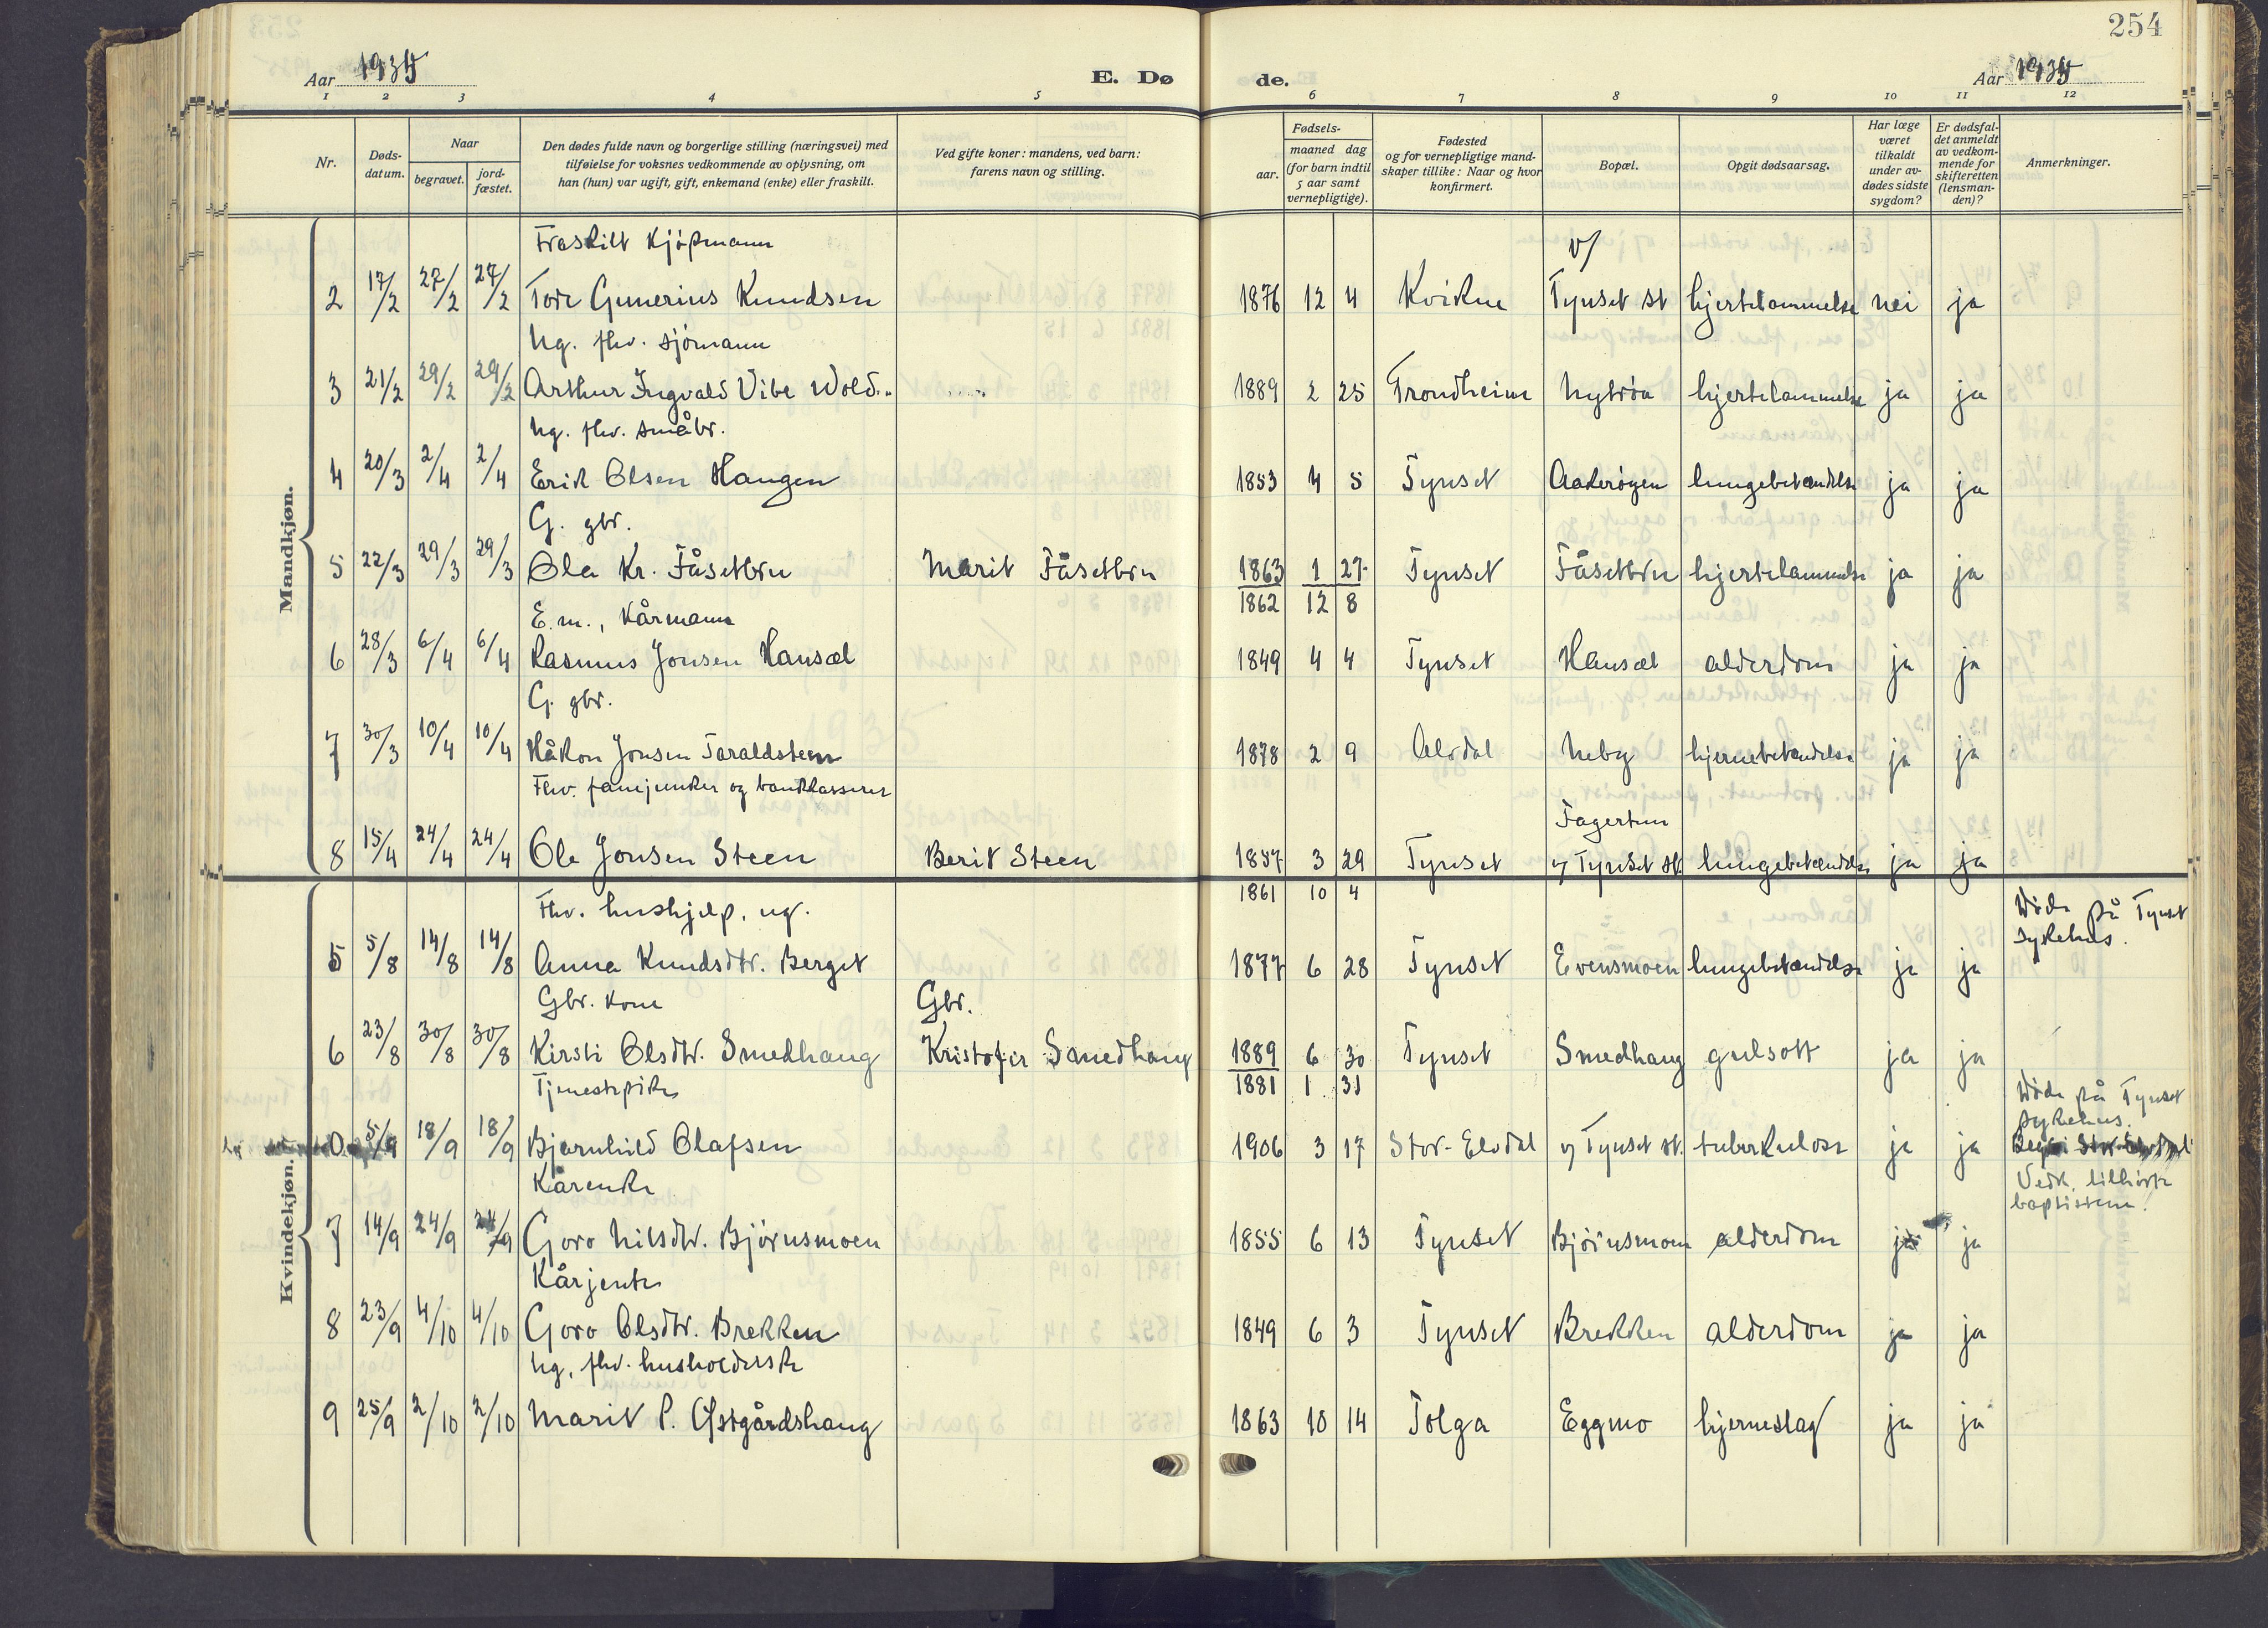 254
Aar 1935 E. Dø de. Aar 1935
1 2 3 4 5 6 7 8 9 10 11 12
Nr. Døds-datum. Naar begravet. jord-fæstet. Den dødes fulde navn og borgerlige stilling (næringsvei) med tilføielse for voksnes vedkommende av oplysning, om han (hun) var ugift, gift, enkemand (enke) eller fraskilt. Ved gifte koner: mandens, ved barn: farens navn og stilling. Fødsels- aar. maaned dag (for barn indtil 5 aar samt vernepligtige). Fødested og for vernepligtige mandskaper tillike: Naar og hvor konfirmert. Bopæl. Opgit dødsaarsag. Har læge været tilkaldt under avdødes sidste sygdom? Er dødsfaldet anmeldt av vedkommende for skifteretten (lensmanden)? Anmerkninger.
Mandkjøn.
Fraskilt kjøpmann v/
2 17/2 27/2 27/2 Tore Gunerius Knudsen 1876 12 4 Kvikne Tynset st hjertelammelse nei ja
Ug. fhv. sjømann
3 21/2 29/2 29/2 Arthur Ingvald Vibe Wold 1889 2 25 Trondheim Nytrøa hjertelammelse ja ja
Ug. fhv. småbr.
4 20/3 2/4 2/4 Erik Olsen Haugen 1853 4 5 Tynset Aakerøyen lungebetændelse ja ja
G. gbr.
5 22/3 29/3 29/3 Ola Kr. Fåsetbru Marit Fåsetbru 1863 1 27 Tynset Fåsetbru hjertelammelse ja ja
1862 12 8
E.m., kårmann
6 28/3 6/4 6/4 Rasmus Jonsen Hansæl 1849 4 4 Tynset Hansæl alderdom ja ja
G. gbr.
7 30/3 10/4 10/4 Håkon Jonsen Taraldsteen 1878 2 9 Alvdal Neby hjernebetændelse ja ja
Fhv. fanejunker og bankkasserer
Fagertun
8 15/4 24/4 24/4 Ole Jonsen Steen Berit Steen 1857 3 29 Tynset v/ Tynset st. lungebetændelse ja ja
1861 10 4
Kvindekjøn.
Fhv. hushjelp, ug. Døde på Tynset sykehus.
5 5/8 14/8 14/8 Anna Knudsdtr. Berget 1877 6 28 Tynset Evensmoen lungebetændelse ja ja
Gbr. kone Gbr.
6 23/8 30/8 30/8 Kirsti Olsdtr. Smedhaug Kristofer Smedhaug 1889 6 30 Tynset Smedhaug gulsott ja ja
1881 1 31
Tjenestepike Døde på Tynset sykehus.
0. 5/9 18/9 18/9 Bjarnhild Olafsen 1906 3 17 Stor-Elvdal v/ Tynset st. tuberkulose ja ja
Vedk. tilhørte baptistene!
Kårenke
7 14/9 24/9 24/9 Goro Nilsdtr. Bjørnsmoen 1855 6 13 Tynset Bjørnsmoen alderdom ja ja
Kårjente
8 23/9 4/10 4/10 Goro Olsdtr. Brekken 1849 6 3 Tynset Brekken alderdom ja ja
Ug., fhv. husholderske
9 25/9 2/10 2/10 Marit P. Østgårdshaug 1863 10 14 Tolga Eggmo hjerneslag ja ja